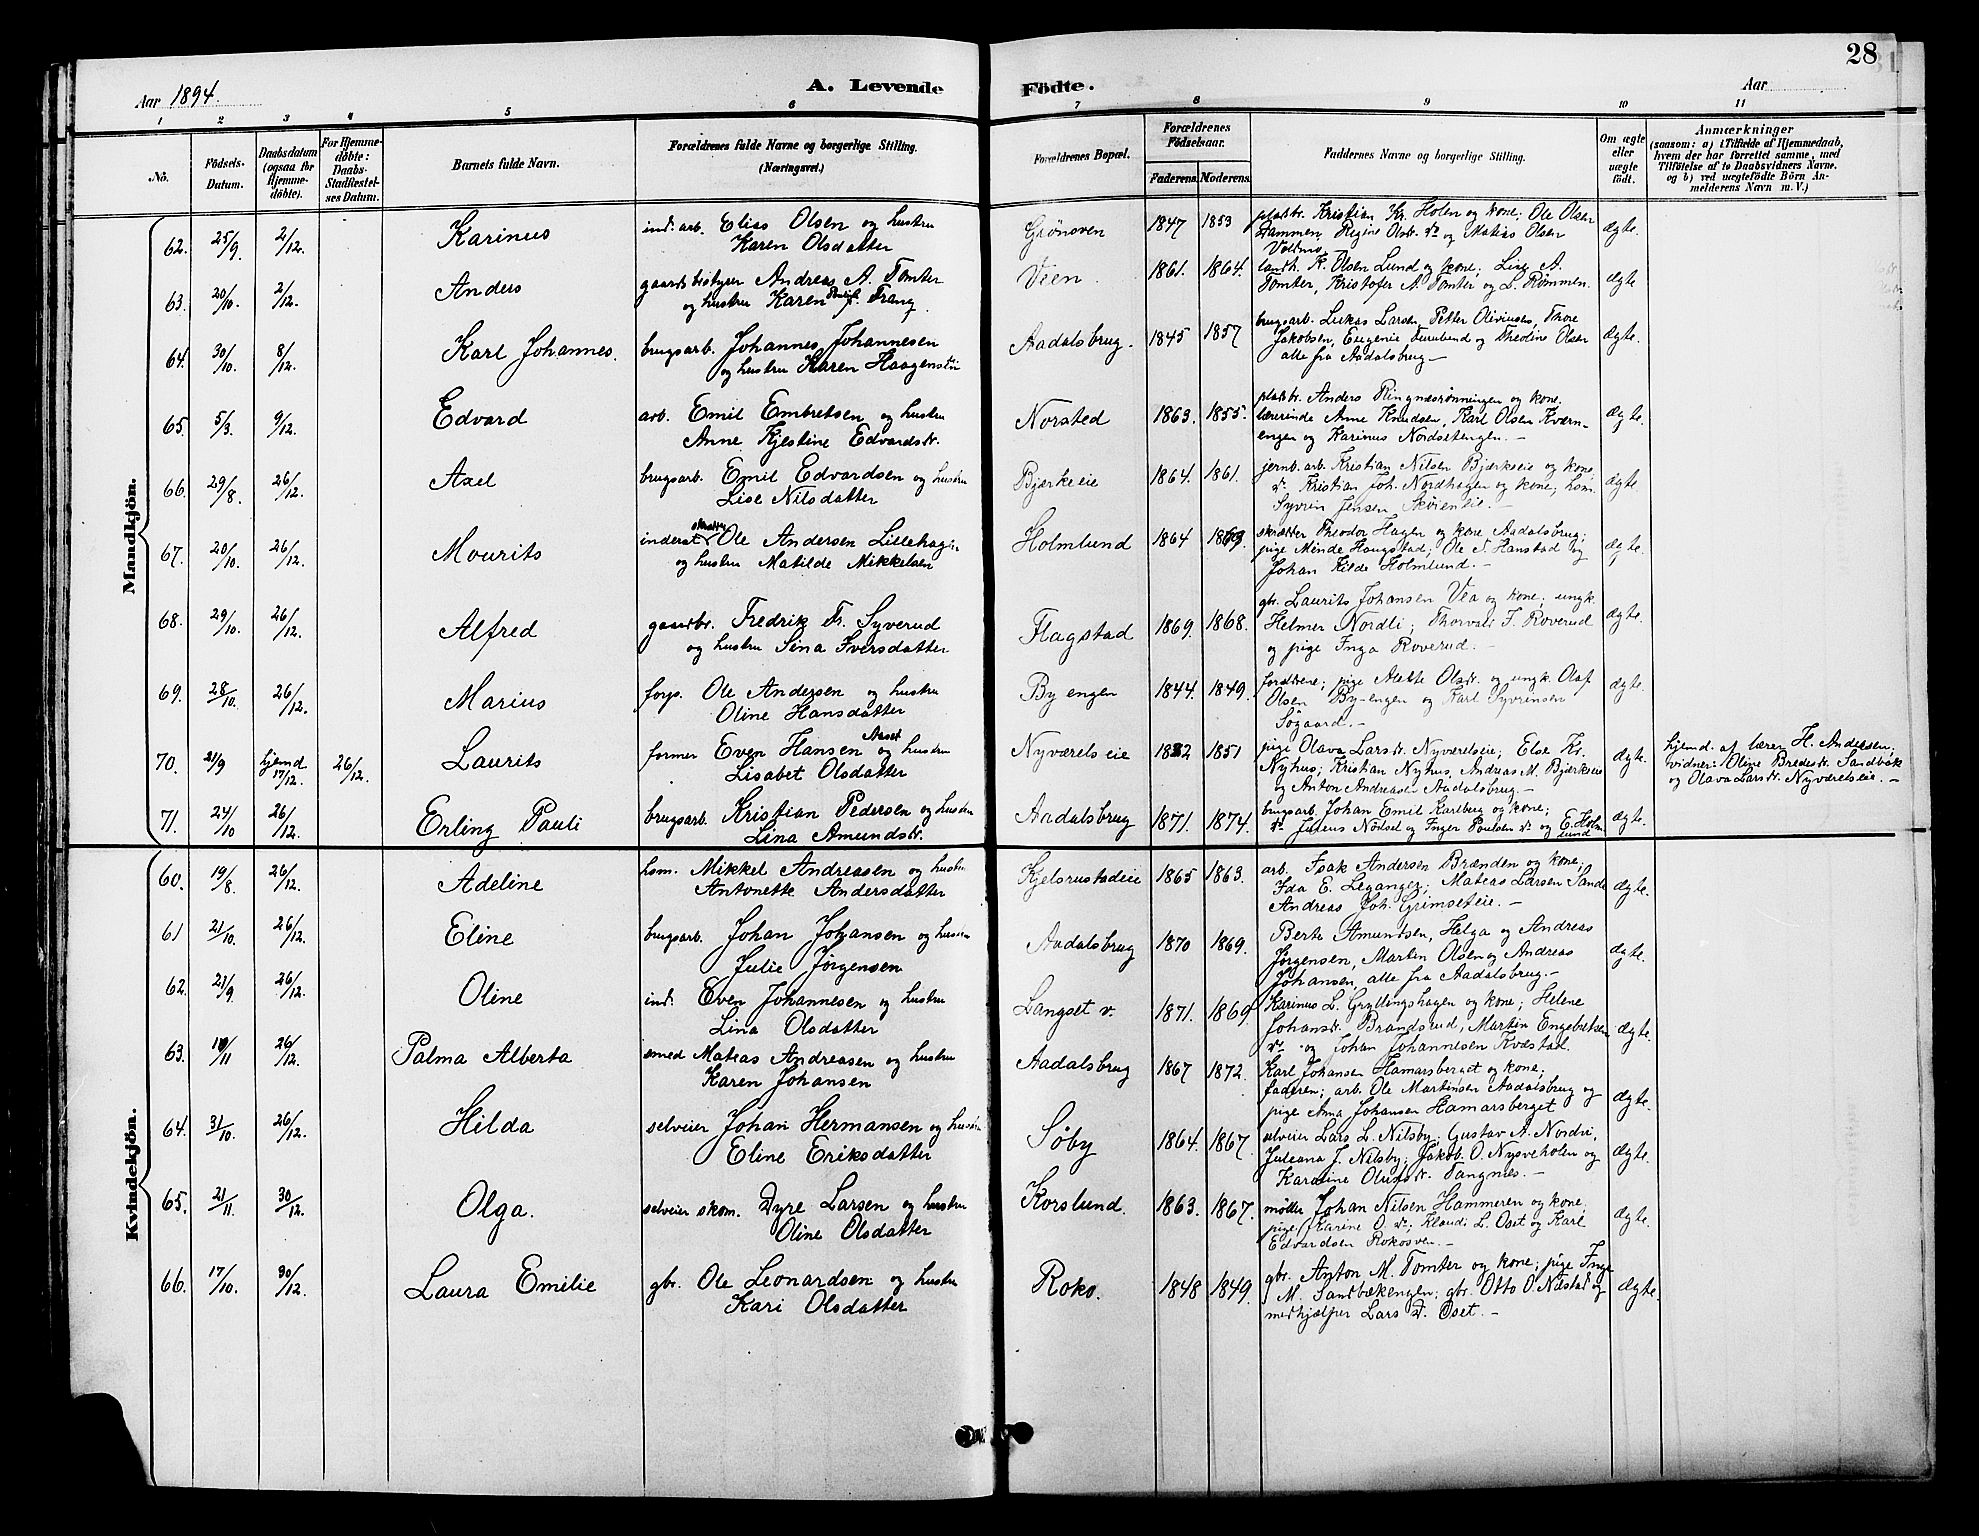 28
Aar 1894.
A. Levende Födte.
Aar
1 2 3 4 5 6 7 8 9 10 11
No.
Födsels-Datum.
Daabsdatum (ogsaa for Hjemme-döbte).
For Hjemme-döbte: Daabs-Stadfæstel-ses Datum.
Barnets fulde Navn.
Forældrenes fulde Navne og borgerlige Stilling. (Næringsvei.)
Forældrenes Bopæl.
Forældrenes Födselsaar.
Faderens. Moderens.
Faddernes Navne og borgerlige Stilling.
Om ægte eller uægte födt.
Anmærkninger
(saasom: a) i Tilfælde af Hjemmedaab,
hvem der har forrettet samme, med
Tilföielse af to Daabsvidners Navne.
og b) ved uægtefödte Börn An-
melderens Navn m. V.)
Mandkjön.
62. 25/9 2/12. Karinus ind. arb. Elias Olsen og hustru Karen Olsdatter Grönsven 1847 1853 pladsbr. Kristian Kr. Holen og kone; Ole Olsen Hammen, Regine Olsdr. do og Matias Olsen Voldmo ægte.
63. 20/10. 2/12. Anders gaardsbestyrer Andreas A. Tomter og hustru Karen Trang Veen 1861. 1864. landh. K. Olsen Lund og kone; Lise A. Tomter, Kristofer A. Tomter og L. Rømmen. ægte
64. 30/10. 8/12. Karl Johannes. brugsarb. Johannes Johannesen og hustru Karen Haagenstn Aadalsbrug. 1845 1857 brugsarb. Lukas Larsen, Petter Oliviusen, Thore Jakobsen, Eugenie Furulund og Theoline Olsen alle fra Aadalsbrug – ægte.
65. 5/3. 9/12. Edvard arb. Emil Embretsen og hustru Anne Kjestine Edvardsdr. Norsted 1863. 1855. pladsbr. Anders Ringnæsrønningen og kone. lærerinde Anne Knudsen, Karl Olsen Kværn-engen og Karinus Nordsetengen. – ægte.
66. 29/8. 26/12. Axel brugsarb. Emil Edvardsen og hustru Lise Nilsdatter Bjerkeeie 1864. 1861. jernb. arb. Kristian Nilsen Bjærkeeie og kone, do. Kristian Joh. Nordhagen og kone; hom. Syvrin Jensen Skøieneie. – ægte
67. 20/10. 26/12. Mourits inderst Ole Andersen Lillehagen og hustru Matilde Mikkelsen Holmlund 1864 skrædder Theodor Hagen og kone Aadalsbrug; pige Minde Haugstad; Ole N. Hanstad og Johan Kilde Holmlund. – ægte.
68. 29/10. 26/12. Alfred gaardbr. Fredrik Fr. Syverud og hustru Sina Iversdatter Flagstad 1869. 1868. gbr. Laurits Johansen Vea og kone; ungk. Helmer Nordli; Thorvald F. Roverud og pige Inga Roverud. – ægte.
69. 28/10. 26/12. Marius forp. Ole Andersen og hustru Oline Hansdatter By engen 1844. 1849. forældrene; pige Alette Olsdr. og ungk. Olaf Olsen By-engen og Karl Syvrinsen Søgaard. – ægte
70. 21/9 hjemd 17/12. 26/12. Laurits former Even Hansen Aaset og hustru Lisabet Olsdatter Nyværels eie 1851 pige Olava Larsdr. Nyværelseie; Else Kr. Nyhus; Kristian Nyhus, Andreas M. Bjerkeeie og Anton Andreasen Aadalsbrug. – ægte. hjemd. af lærer H. Andersen; vidner: Oline Bredesdr. Sandbæk og Olava Larsdr. Nyværelseie. –
71. 24/10 26/12. Erling Pauli brugsarb. Kristian Pedersen og hustru Lina Amundsdr. Aadalsbrug 1871. 1874. brugsarb. Johan Emil Karlberg og kone; do. Julius Nordset og Inger Paulsen do og E. Holmlund ægte.
Kvindekjön.
60. 19/8. 26/12. Adeline hsm. Mikkel Andreasen og hustru Antonette Andersdatter Kjelsrustadeie 1865 1863. arb. Isak Andersen Brænden og kone; Ida E. Leganger; Mateas Larsen Sande Andreas Joh. Grimseteie. – ægte.
61 21/10. 26/12. Eline brugsarb. Johan Johansen og hustru Julie Jørgensen Aadalsbrug 1870 1869. Berte Amundsen, Helga og Andreas Jørgensen, Martin Olsen og Andreas Johansen, alle fra Aadalsbrug. – ægte.
62. 21/9. 26/12. Oline ind. Even Johannesen og hustru Lina Olsdatter Langset v. 1871. 1869. Karinus L. Gryllingshagen og kone; Helene Johansdr. Brandsrud, Martin Engebretsen do og Johan Johannesen Kvæstad ægte.
63. 11 26/12. Palma Alberta smed Mateas Andreasen og hustru Karen Johansen Aadalsbrug 1867 1872. Karl Johansen Hamarsberget og kone; faderen; arb. Ole Martinsen Aadalsbrug og pige Anna Johansen Hamarsberget ægte.
64. 31/10. 26/12. Hilda selveier Johan Hermansen og hustru Eline Eriksdatter Søby 1864. 1867. selveier Lars L. Nilsby; Gustav A. Nordvi, Juleana J. Nilsby; Jakob O. Nysveholen og Karoline Olufsdr. Tangnes. – ægte.
65. 21/11. 30/12. Olga. selveier skom. Dyre Larsen og hustru Oline Olsdatter Korslund. 1863. 1867. møller Johan Nilsen Hammeren og kone; pige Karine O. do; Klaudi L. Oset og Karl Edvardsen Rokosven. – ægte.
66. 17/10. 30/12. Laura Emilie gbr. Ole Leonardsen og hustru Kari Olsdatter Roko. 1848 1849. gbr. Anton M. Tomter og kone; pige Inge M. Sandbækengen; gbr. Otto O. Næstad og medhjælper Lars T. Oset. – ægte.